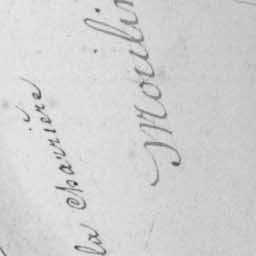 la Charrière
Moulin